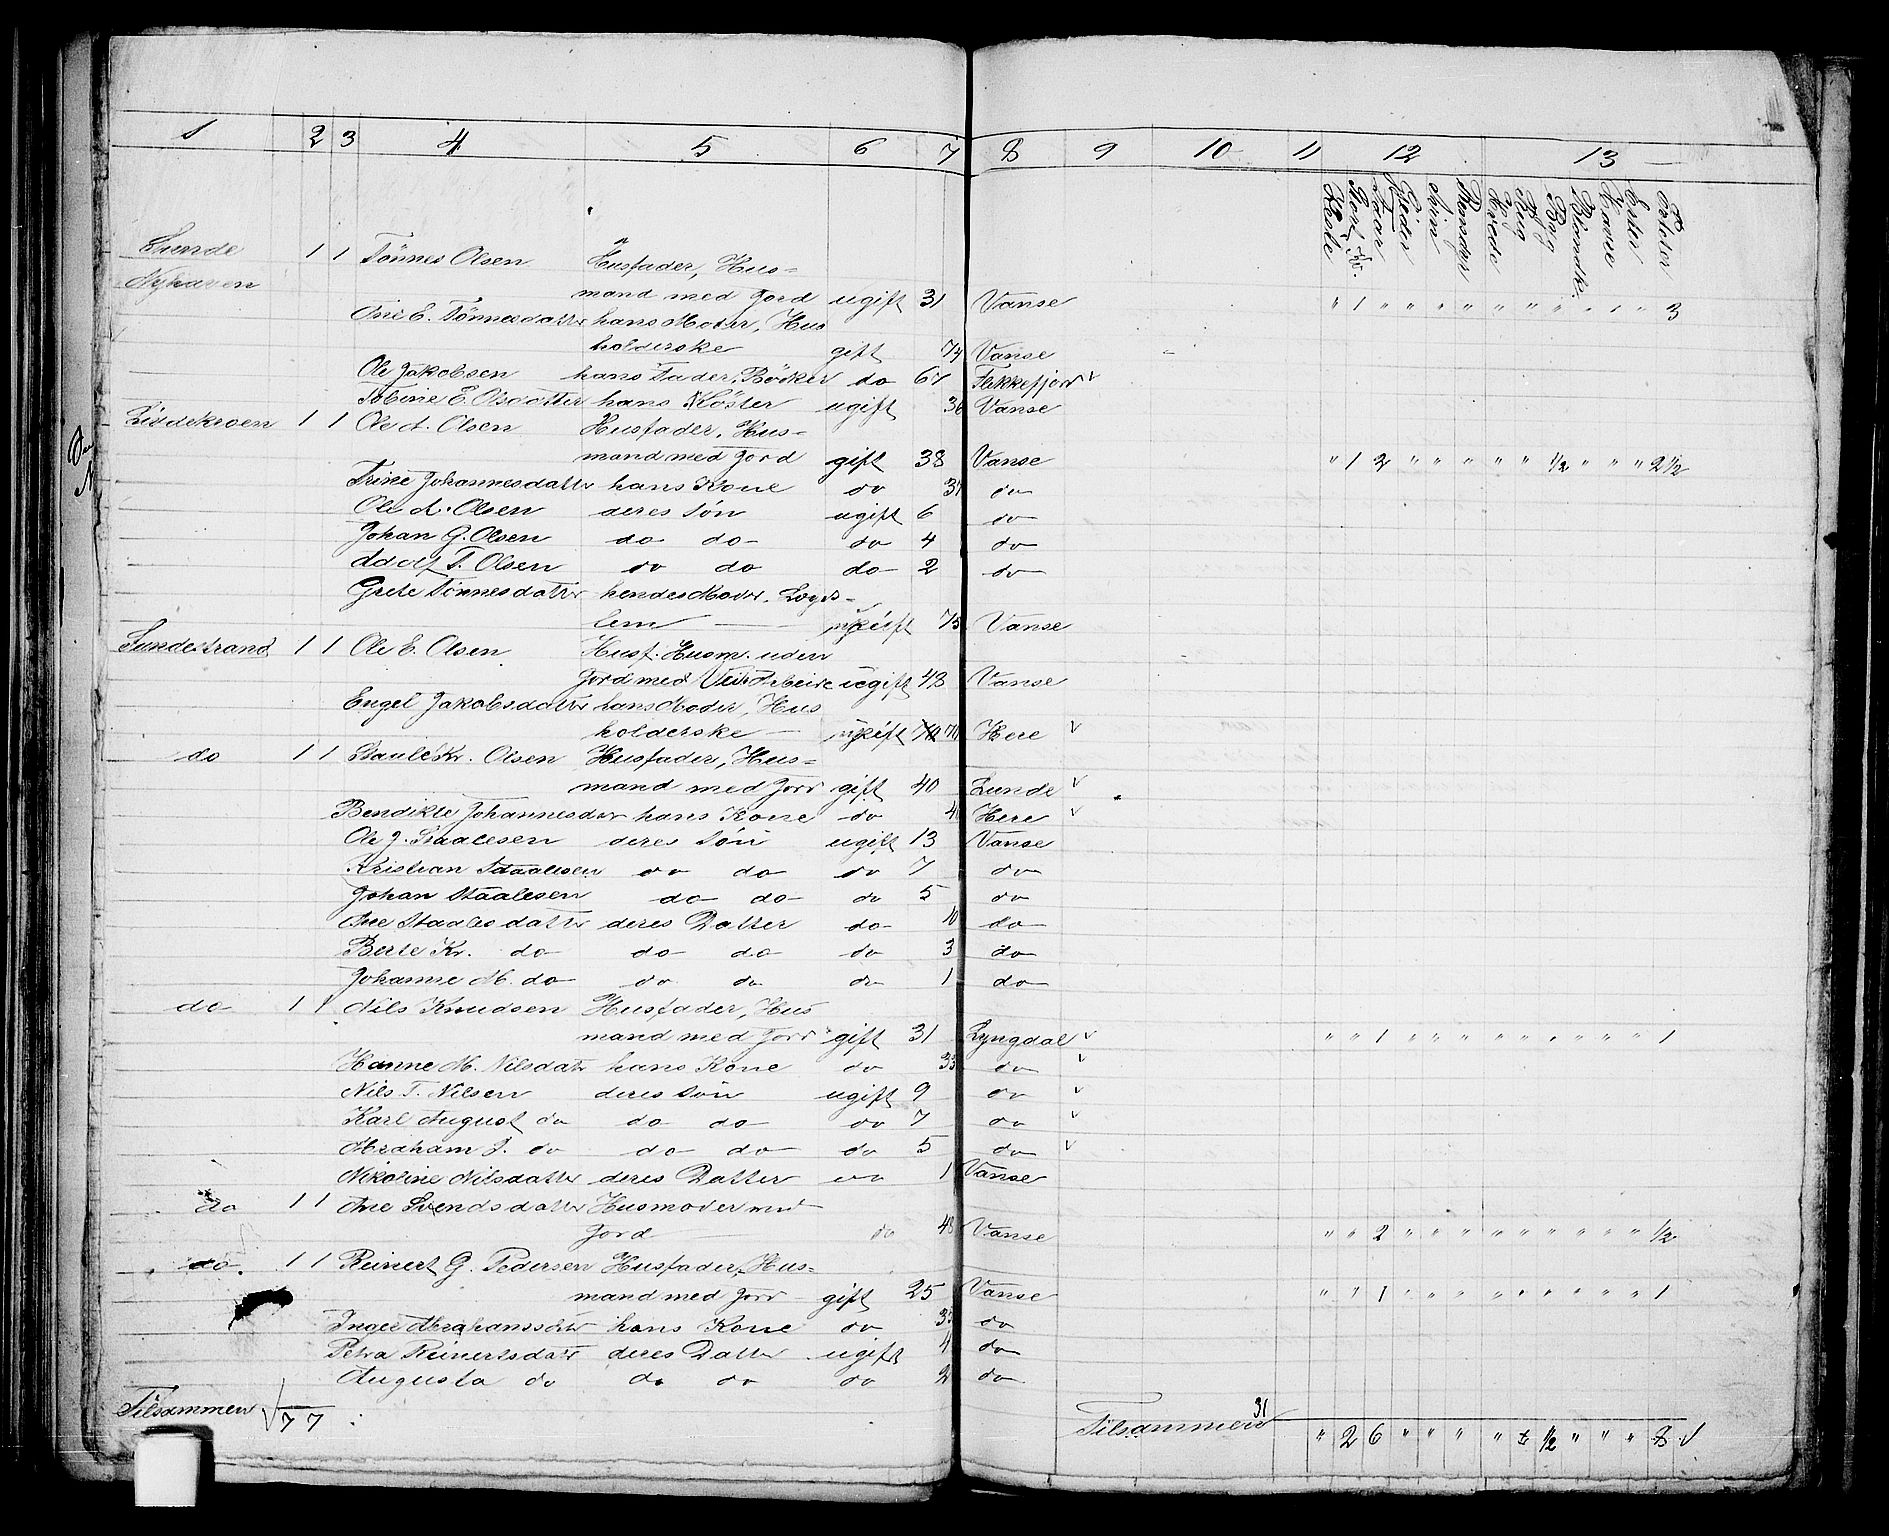 1 2 3 4 5 6 7 8 9 10 11 12 13
Heste Stort Kv. Faar Gjeder Svin Rensdyr Hvede Rug Byg Blandk. Havre Erter Poteter
Sunde 1 1 Tønnes Olsen Husfader, Hus-
Nyhaven mand med Jord ugift 31 Vanse " 1 " " " " " " " " " " 3
Ane E. Tønnesdatter hans Moder, Hus
holderske gift 74 Vanse
Ole Jakobsen hans Fader, Bødker do 67 Flekkefjord v
Tobine E. Olsdatter hans Søster ugift 36 Vanse
1 1 Ole A. Olsen Husfader, Hus-
mand med Jord gift 38 Vanse " 1 2 " " " " " 1/2 " " " 2 1/2
Trine Johannesdatter hans Kone do 37 do
Ole A. Olsen deres Søn ugift 6 do
Johan G. Olsen do do do 4 do
Adolf T. Olsen do do do 2 do
Grete Tønnesdatter hendes Moder, Logs-
lem 75 Vanse
Sundestrand 1 1 Ole E. Olsen Husf. Husm. uden
Jord med Vei Arbeide ugift 43 Vanse
Engel Jakobsdatter hans Moder, Hus
holderske Here v
do 1 1 Staale Kr. Olsen Husfader, Hus-
mand med Jord gift 40 Lunde v
Bendikte Johannesdtr hans Kone do Here v
Ole J. Staalesen deres Søn ugift 13 Vanse
Kristian Staalesen do do do 7 do
Johan Staalesen do do do 5 do
Ane Staalesdatter deres Datter do 10 do
Berte Kr. do do do do 3 do
Johanne M. do do do do 1 do
do 1 1 Nils Knudsen Husfader, Hus
mand med Jord gift 31 Lyngdal v " " 1 " " " " " " " " " 1
Hanne M. Nilsdatr hans Kone do 33 do v
Nils T. Nilsen deres Søn ugift 9 do v
Karl August do do do do 7 do v
Abraham J. do do do do 5 do v
Nikoline Nilsdatter deres Datter do 1 Vanse
do 1 1 Ane Svendsdatter Husmoder med
Jord do 48 Vanse " " 2 " " " " " " " " " 1/2
do 1 1 Reinert G. Pedersen Husfader, Hus-
mand med Jord gift 25 Vanse " " 1 " " " " " " " " " 1
Inger Abrahamsdtr hans Kone do do
Petra Reinertsdatr deres Datter ugift 4 do
Augusta do do do do 2 do
Tilsammen 7 7
Tilsammen 31 " 2 6 " " " " " 1/2 " " " 8